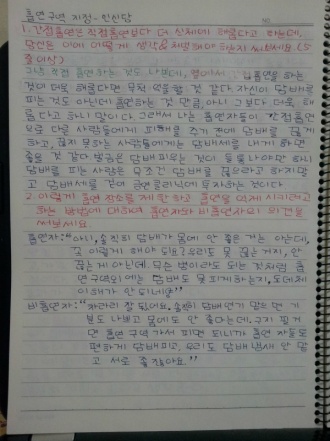 흡연구역 지정-찬신당
1. 간접흡연은 직접흡연보다 더 신체에 해롭다고 하는데,
당신은 이에 어떻게 생각하는지 쓰세요. (5
줄 이상)
그냥 직접 흡연하는 것도 나쁜데, 옆에서 간접흡연을 하는
것이 더욱 해롭다면 무척 억울할 것 같다. 자신이 담배를
피는 것도 아닌데 흡연하는 것 만큼, 아니 그보다 더욱 해
롭다고 하니 말이다. 그래서 나는 흡연자들이 간접흡연
으로 다른 사람들에게 피해를 주기 전에 담배를 끊게
하고, 끊지 못하는 사람들에게는 담배세를 내게 하면
좋을 것 같다. 벌금은 담배피우는 것이 들통나야만 하니
담배를 피는 사람은 무조건 담배를 끊으라고 하지말
고 담배세를 걷어 금연클리닉에 투자하는 것이다.
2. 이렇게 흡연 장소를 제한하고 흡연을 억제시키려고
하는 방법에 대하여 흡연자와 비흡연자의 의견을
써보세요.
흡연자: "아니, 솔직히 담배가 몸에 안 좋은 거는 아는데,
꼭 이렇게 해야 되요? 우리도 못 끊는 거지, 안
끊는게 아닌데. 무슨 병이라도 되는 것처럼 흡
연구역외에는 담배도 못 피게하는지, 도대체
이해가 안 되네요"
비흡연자: "차라리 잘 됐어요. 솔직히 담배연기 맡으면 기
분도 나쁘고 몸에도 안 좋다는데. 굳이 필거
면 흡연 구역가서 피면 되니까 흡연자들도
편하게 담배피고, 우리도 담배냄새 안 맡
고 서로 좋잖아요."